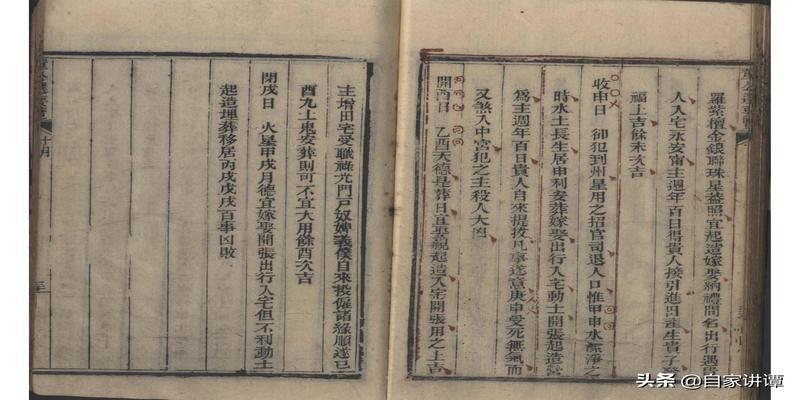 羅紫檀金銀聯珠星蓋照宜起造嫁娶納禮問名出行
人入宅永安甯主週年百日得貴人接引進田產生貴子
福上吉餘未次吉
收申日 卻犯到州星用之招官司退人口惟甲申水潔淨之
時水土長生居申利安葬嫁娶出行入宅動土開張起造營
為主週年百日貴人自來提拔凡事遂意庚申受死無氣而
又煞入中宮犯之主殺人大凶
開酉日 乙酉天德是葬日宜娶親起造入宅開張用之上吉
主增田宅受職祿光門戶奴婢義僕自來投僱諸緣順遂己
酉九土鬼安葬則可不宜大用餘酉次吉
閉戌日 火星甲戌月德宜嫁娶開張出行入宅但不利動土
起造埋葬移居丙戌戊戌百事凶敗
十月
头条 @自家讲谭